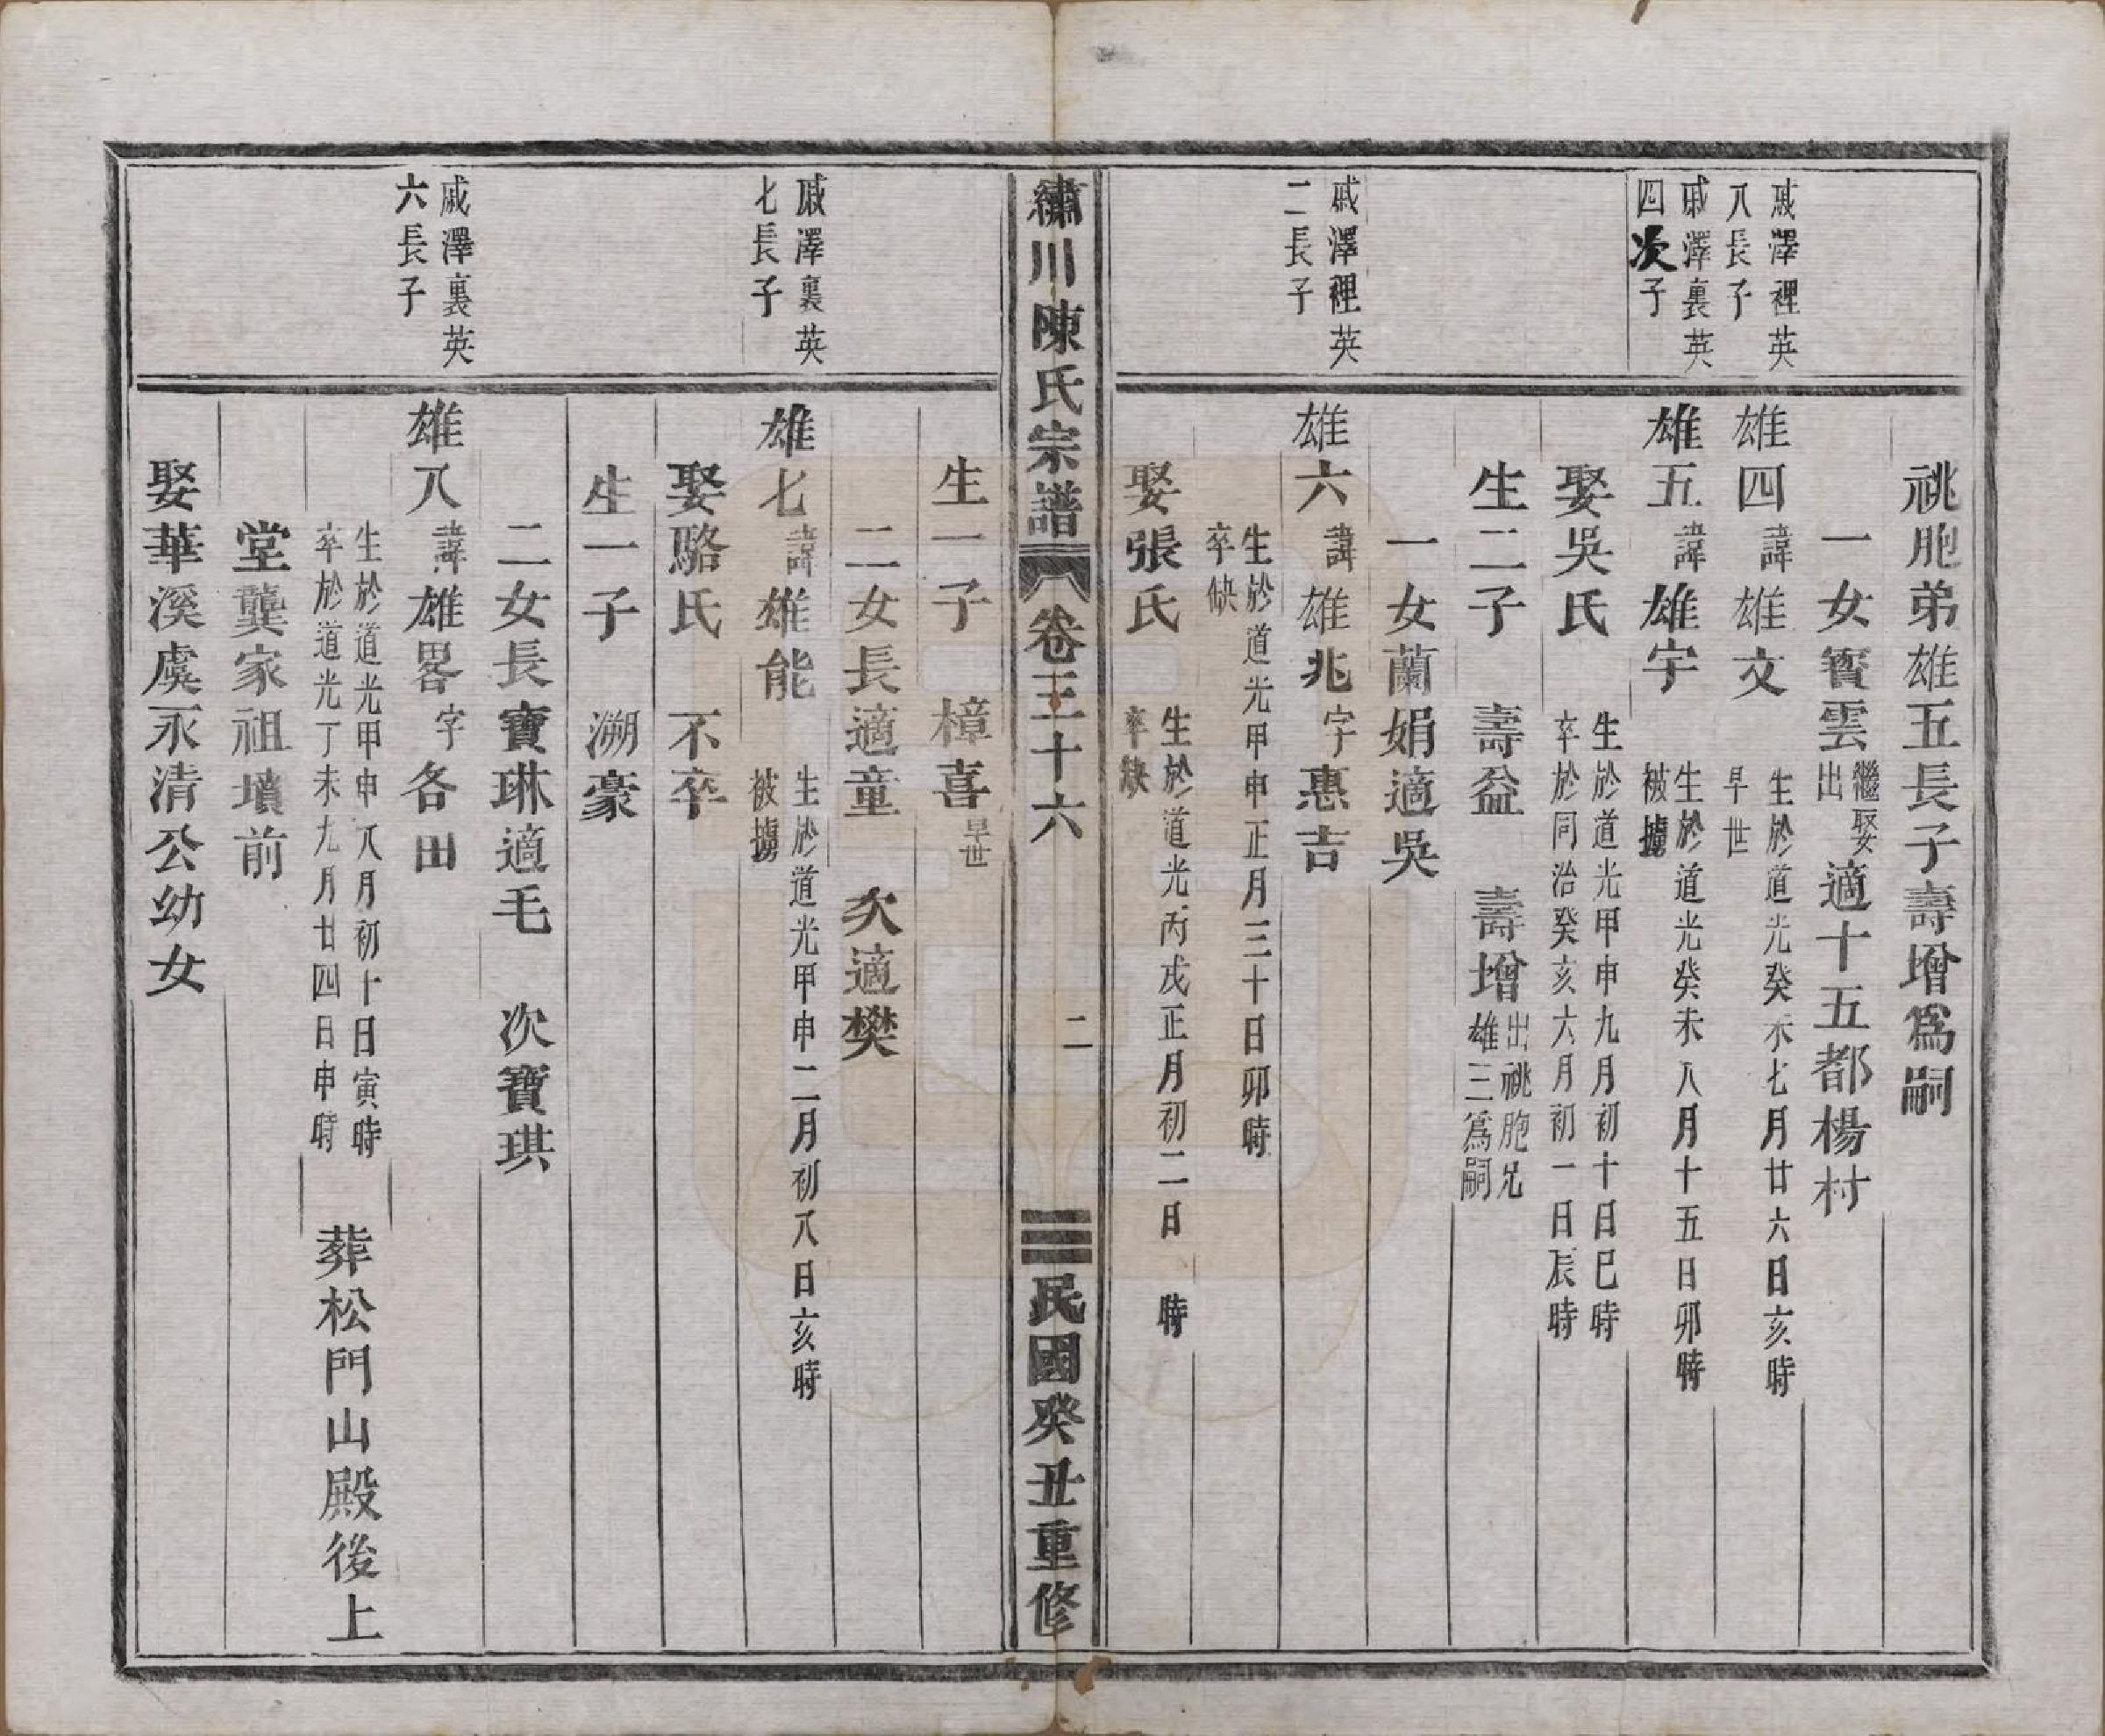 祧胞弟雄五長子壽增爲嗣
一女寳雲繼娶出適十五都楊村
戚澤裡英八長子
雄四諱雄文
生於道光癸未七月廿六日亥時
早世
戚澤裏英四次子
雄五諱雄宇
生於道光癸未八月十五日卯時
被擄
娶吳氏
生於道光甲申九月初十日巳時
卒於同治癸亥六月初一日辰時
生二子 壽益 壽增
出祧胞兄
雄三爲嗣
一女蘭娟適吳
戚澤裡英二長子
雄六諱雄兆字惠吉
生於道光甲申正月三十日卯時
卒缺
娶張氏
生於道光丙戌正月初二日 時
卒缺
繡川陳氏宗譜 卷三十六 二 民國癸丑重修
生一子 樟喜早世
二女長適童 次適樊
戚澤裏英七長子
雄七諱雄能
生於道光甲申二月初八日亥時
被擄
娶駱氏 不卒
生一子 溯豪
二女長寶琳適毛 次寶琪
戚澤裏英六長子
雄八諱雄畧字各田
生於道光甲申八月初十日寅時
卒於道光丁未九月廿四日申時
葬松門山殿後上
堂龔家祖墳前
娶華溪虞永清公幼女